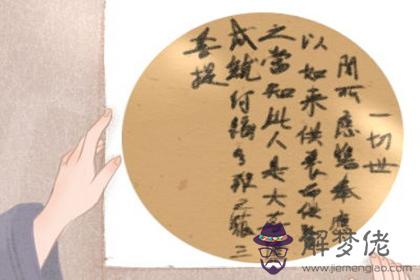 一切世
間所應瞻奉應
以如来供養而供
之當知此人是大菩
成就阿耨多羅三藐三
菩提
解梦佬
www.jiemenglao.com